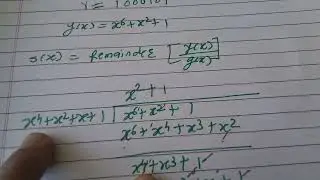 r = 1000101
y(x) = x⁶+x²+1
s(x) = Remainder [y(x)/g(x)]
x²+1
x⁴+x²+x+1 x⁶+x²+1
x⁶+x⁴+x³+x²
x⁴+x³+1